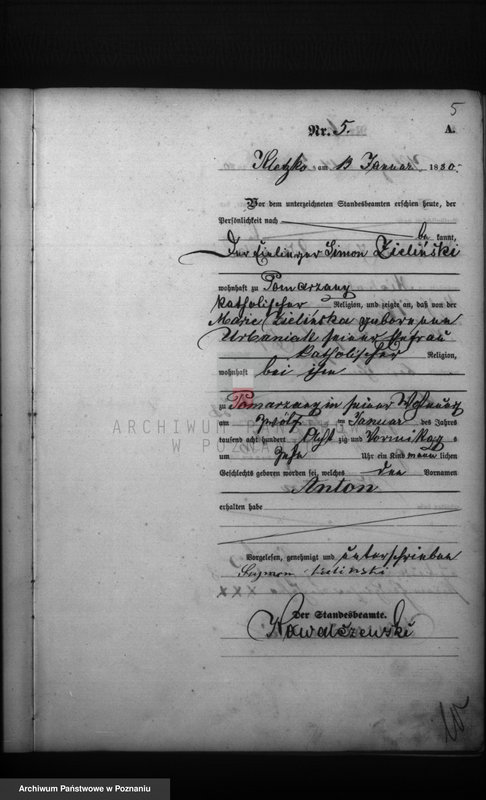 5
Nr. 5. A.
Kletzko am 13 Januar 1880.
Vor dem unterzeichneten Standesbeamten erschien heute, der
Persönlichkeit nach
be kannt,
Der Einlieger Simon Zieliński
wohnhaft zu Pomarzany
katholischer Religion, und zeigte an, daß von der
Marie Zielińska geborenen
Urbaniak seiner Ehefrau
katholischer Religion,
wohnhaft bei ihm
zu Pomarzany in seiner Wohnung
am zwölf ten Januar des Jahres
tausend acht hundert Acht zig und Vormittag s
um Zehn Uhr ein Kind männ lichen
Geschlechts geboren worden sei, welches den Vornamen
Anton
erhalten habe
ARCHIWUM PAŃSTWOWE
W POZNANIU
Vorgelesen, genehmigt und unterschrieben
Szymon Zieliński
Der Standesbeamte.
Kowalszewski
Archiwum Państwowe w Poznaniu